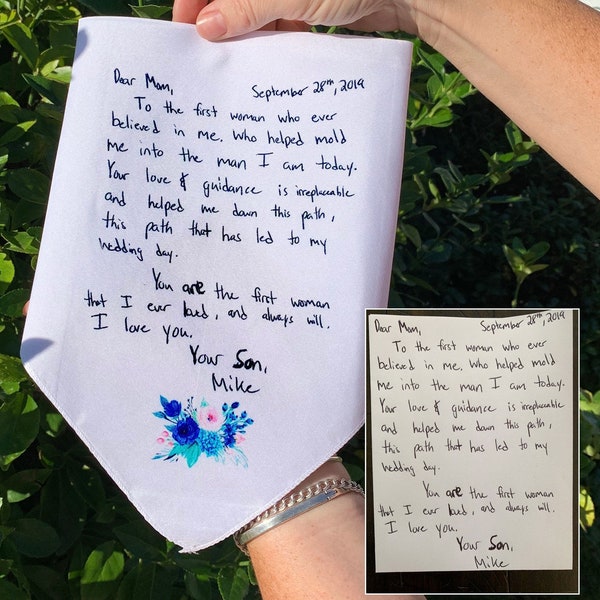 Dear Mom,
September 28th, 2019
To the first woman who ever
believed in me. Who helped mold
me into the man I am today.
Your love & guidance is irreplaceable
and helped me down this path,
this path that has led to my
wedding day.
You are the first woman
that I ever loved, and always will.
I love you.
Your Son,
Mike
Dear Mom,
September 28th, 2019
To the first woman who ever
believed in me. Who helped mold
me into the man I am today.
Your love & guidance is irreplaceable
and helped me down this path,
this path that has led to my
wedding day.
You are the first woman
that I ever loved, and always will.
I love you.
Your Son,
Mike